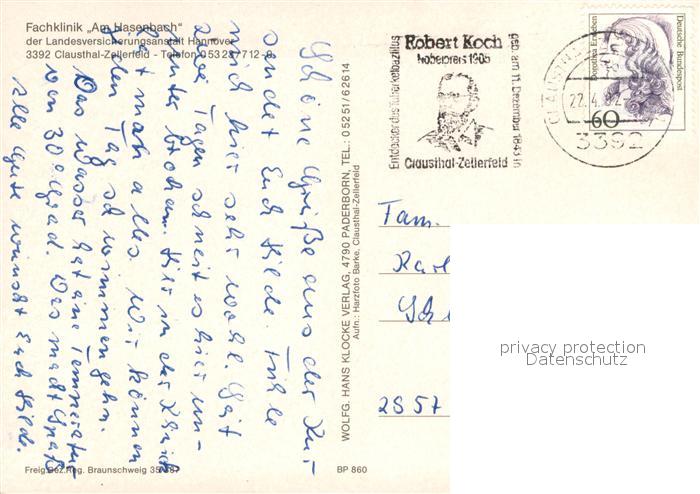 Fachklinik „Am Hasenbach"
der Landesversicherungsanstalt Hannover
3392 Clausthal-Zellerfeld - Telefon 05323/7712-0
Schöne Grüße aus der Kur
sendet Euch Hilde. Fühle
mich hier sehr wohl. Seit
zwei Tagen schneit es hier un-
unterbrochen. Hier in der Klinik
hat man alles. Wir können
jeden Tag schwimmen gehn.
Das Wasser hat eine Temperatur
von 30 Grad. Das macht Spaß
Alle Gute wünscht Euch Hilde.
Freig. Bez. Reg. Braunschweig
BP 860
WOLFG. HANS KLOCKE VERLAG, 4790 PADERBORN, TEL.: 05251/62614
Aufn.: Harzfoto Barke, Clausthal-Zellerfeld
Entdecker des Tuberkelbazillus
Robert Koch
Nobelpreis 1905
geb. am 11. Dezember 1843 in
Clausthal-Zellerfeld
CLAUSTHAL
22.4.92
3392
Deutsche Bundespost
Dorothea Erxleben
60
Fam.
Karl
2857
privacy protection
Datenschutz